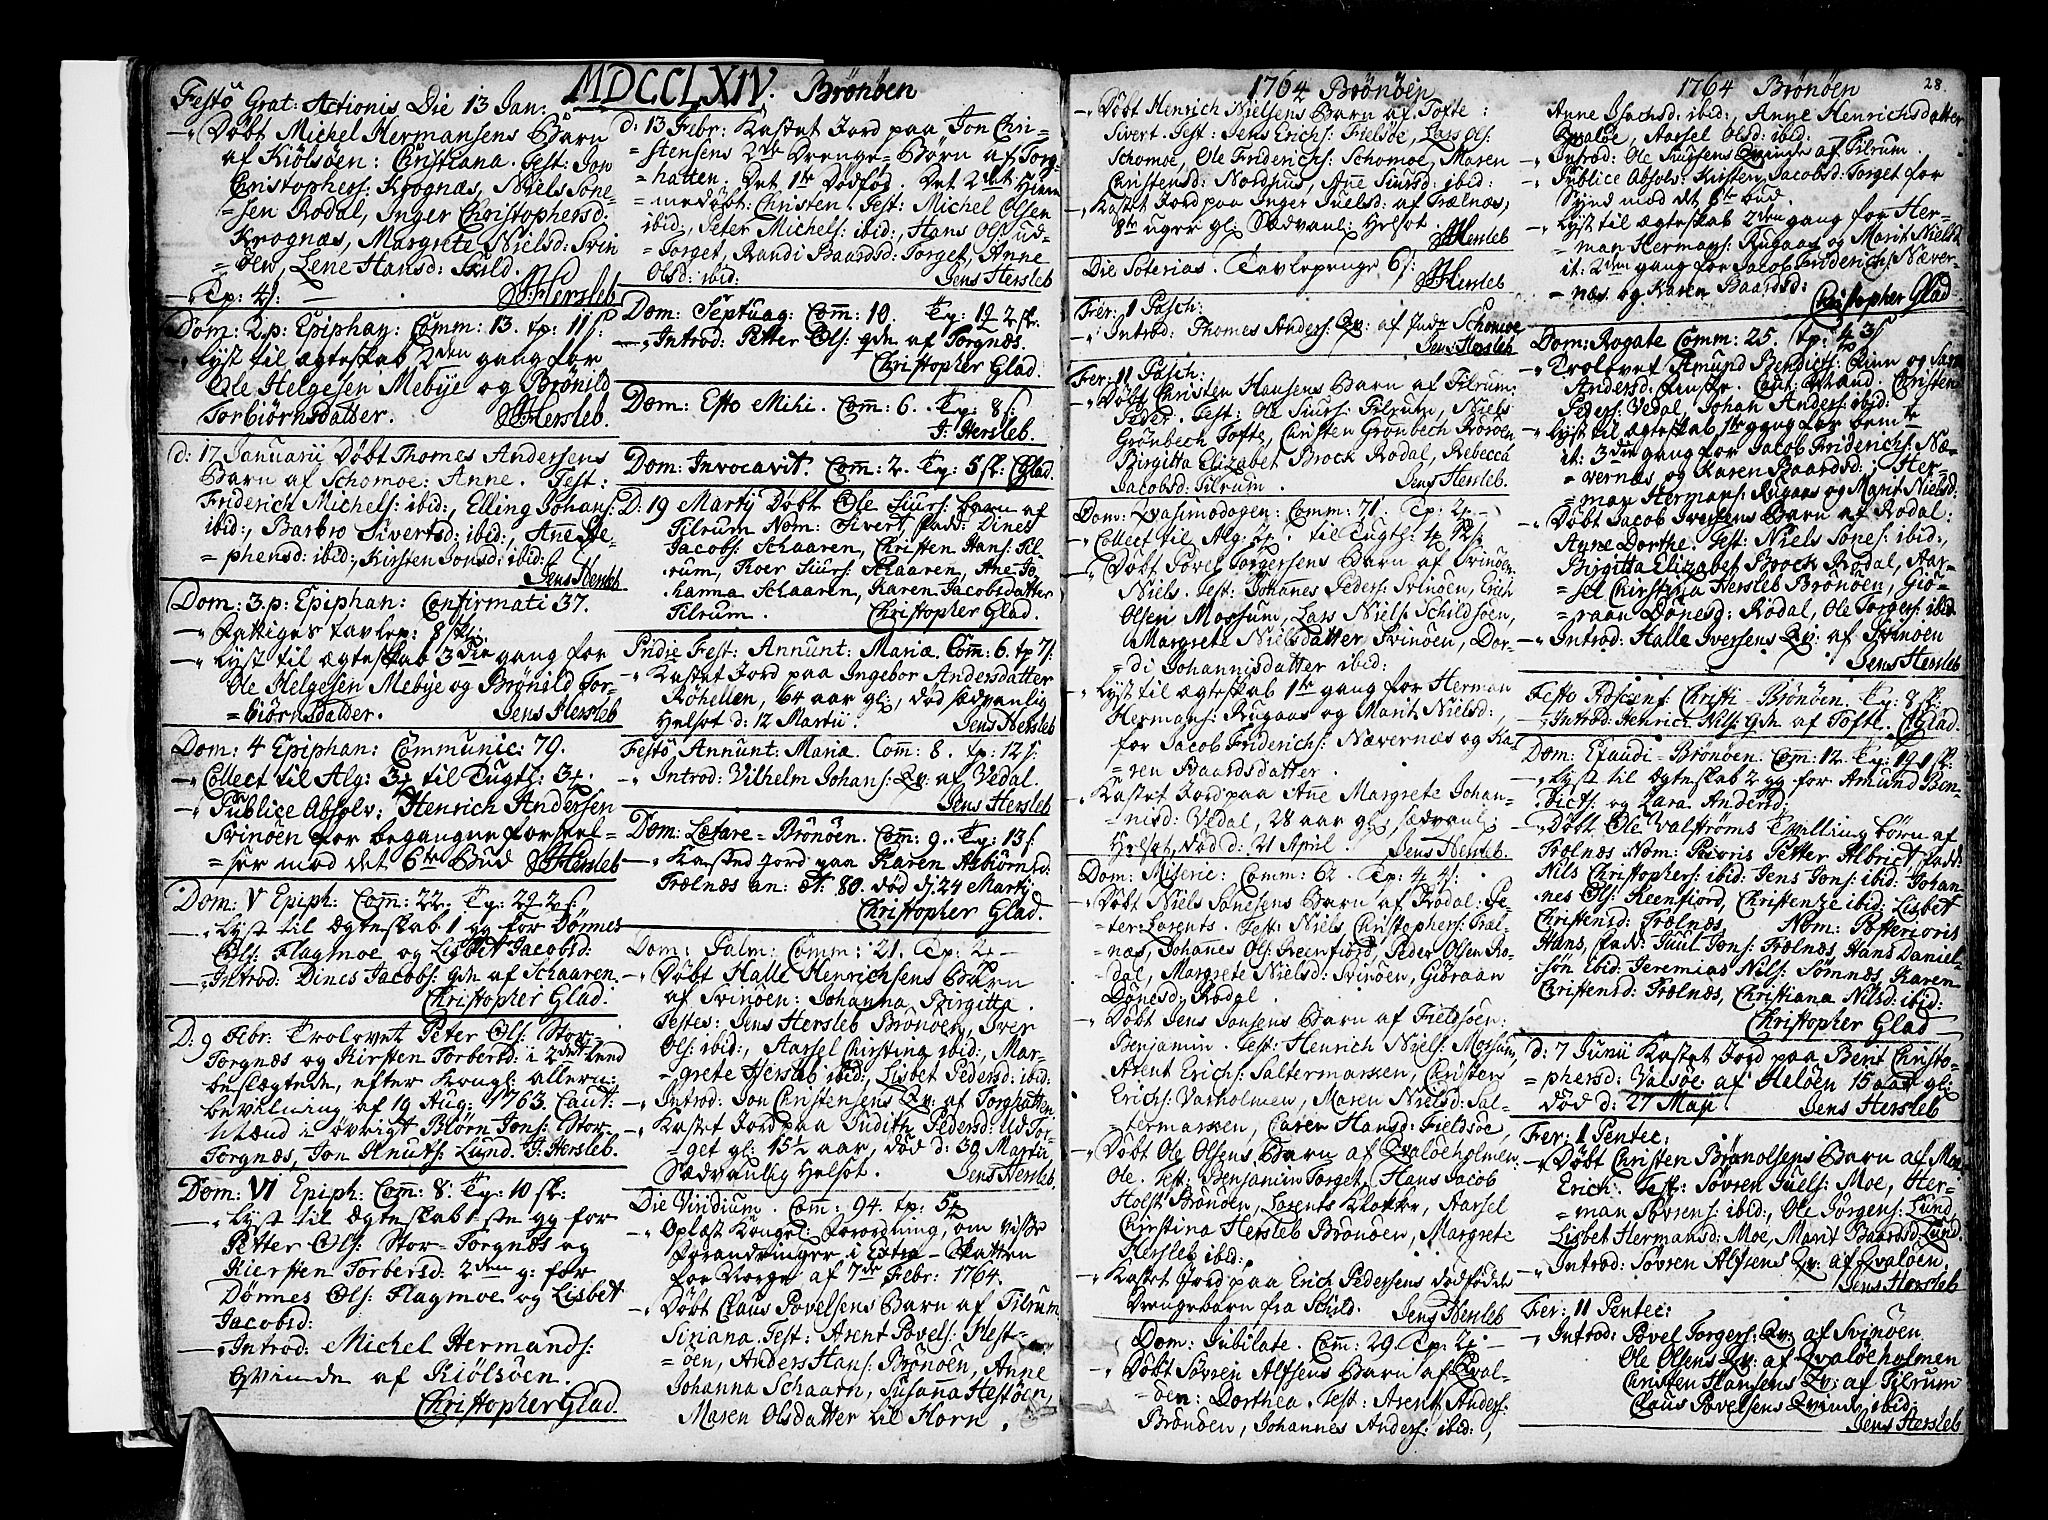 MDCCLXIV. Brønöen
Festo Grat: Actionis Die 13 Jan:
Døbt Michel Hermansens Barn
af Kiölsöen: Christiana. Test: Jon
Christophers: Krognæs, Niels Sone-
=sen Rodal, Inger Christophersd:
Krognæs, Margrete Nielsd: Svin
=öen, Lene Hansd: Skild.
Tp: 4 s: JHersleb
Dom: 2 p: Epiphan: Comm: 13. tp: 11 s:
Lyst til ægteskab 2den gang for
Ole Helgesen Mebye og Brönild
Torbiörnsdatter. JHersleb.
d: 17 Januarii Døbt Thomes Andersens
Barn af Schomoe: Anne. Test:
Friderich Michels: ibid:, Elling Johans:
ibid:, Barbro Sivertsd: ibid:, Anne Ste-
=phensd: ibid:, Kirsten Jonsd: ibid:
Jens Hersleb
Dom: 3. p: Epiphan: Confirmati 37.
Fattiges tavlep: 8 sk:
Lyst til ægteskab 3die gang for
Ole Helgesen Mebye og Brönild Tor-
=biörnsdatter. Jens Hersleb
Dom: 4 Epiphan: Communic: 79.
Collect til Alg: 3 til Tugth: 3.
Publice Absolv: Henrich Andersen
Svinöen for begangne forseel-
=ser mod det 6te Bud JHersleb
Dom: V Epiph: Comm: 22. Tp: 2 s:
Lyst til ægteskab 1 gg for Dönnes
Ols: Flagmoe og Lisbet Jacobsd:
Introd: Dines Jacobs: qvn af Schaaren.
Christopher Glad.
D: 9 Febr: Trolovet Peter Ols: Stor-
Torgnæs og Kirsten Torbersd: i 2det Lend
beslægtede, efter Kongl: allern:
bevilning af 19 Aug: 1763. Caut:
Mænd i övrigt Biörn Jons: Stor-
Torgnæs, Jon Knuts: Lund. J: Hersleb.
Dom: VI Epiph: Com: 8. Tp: 10 sk:
Lyst til Ægteskab 1ste gg for
Petter Ols: Stor-Torgnæs og
Kiersten Torbersd: 2den g: for
Dönnes Ols: Flagmoe og Lisbet
Jacobsd:
Introd: Michel Hermands:
qvinde af Kiölsöen.
Christopher Glad.
d: 13 Febr: Kastet Jord paa Jon Chri-
=stensens 2de Drenge-Børn af Torg-
=hatten. Det 1te Dødfød. Det 2det Hiem
=medøbt: Christen. Test: Michel Olsen
ibid:, Peter Michels: ibid:, Hans Ols: ud-
Torget, Randi Baardsd: Torget, Anne
Olsd: ibid: Jens Hersleb
Dom: Septuag: Com: 10. Tp: 2 sk:
Introd: Petter Ols: qvn. af Torgnæs.
Christopher Glad.
Dom: Esto Mihi. Com: 6. Tp: 8 s:
J: Hersleb.
Dom: Invocavit. Com: 2. Tp: 5 sk: CGlad.
D: 19 Martij Døbt Ole Siurs: barn af
Tilrum Nom: Sivert, fadd: Dines
Jacobs: Schaaren, Christen Hans: Til-
rum, Siurs: Schaaren, Ane Jo-
hanna Schaaren, Karen Jacobsdatter
Tilrum. Christopher Glad.
Pridie Fest: Annunt: Mariæ. Com: 6. tp 7 s:
Kastet Jord paa Ingebor Andersdatter
Röhellen, 64 aar gl:, død sædvanlig
Helsot d: 12 Martii. Jens Hersleb
Festo Annunt: Mariæ. Com: 8. tp: 12 s:
Introd: Vilhelm Johans: Qv: af Vedal.
Jens Hersleb
Dom: Lætare = Brönöen. Com: 9. Tp: 13 s
Kasted Jord paa Karen Asbiörnsd:
Trælnæs an: æt: 80. død d: 24 Martj
Christopher Glad.
Dom: Palm: Comm: 21. Tp: 2
Døbt Halle Henrichsens Barn
af Svinöen: Johanna Birgitta.
Testes: Jens Hersleb Brönöen, Iver
Ols: ibid:, Aarsel Christina ibid:, Mar-
=grete Hersleb ibid:, Lisbet Pedersd: ibid:
Introd: Jon Christensens Qv: af Torghatten.
Kastet Jord paa Judith Pedersd: Ud Tor-
get gl: 15½ aar, død d: 30 Martii
Sædvanlig Helsot. Jens Hersleb
Die Viridium. Com: 94. tp: 5
Oplæst Kongel: Forordning, om visse
Forandringer i Extra-Skatten
for Norge af 7de Febr: 1764.
Døbt Claus Povelsens Barn af Tilrum
Siriana. Test: Arent Povels: Hest-
=öen, Anders Hans: Brönöen, Anne
Johanna Schaarn, Susanna Hestöen,
Maren Olsdatter til Horn.
1764 Brönöen
Døbt Henrich Nielsens Barn af Tofte:
Sivert. Test: Jens Erichs: Fielsöe, Lars Ols:
Schomoe, Ole Friderichs: Schomoe, Maren
Christensd: Nordhus, Anne Siursd: ibid:
Kastet Jord paa Inger Juelsd: af Trælnæs,
8te uger gl: Sædvanl: Helsot JHersleb
Die Soterias. Tavlepenge 6 s:
JHersleb
Fer: 1 Pasch:
Introd: Thomes Anders: Qv: af Indr Schomoe
Jens Hersleb
Fer: 11 Pasch:
Døbt Christen Hansens Barn af Tilrum:
Peder. Test: Ole Siurs: Tilrum, Niels
Grönbech Tofte, Christen Grönbech Rörøen,
Birgitta Elizabet Brock Rodal, Rebecca
Jacobsd: Tilrum. Jens Hersleb.
Dom: Qvasimodogen: Comm: 71. Tp: 2
Collect til Alg: 2. til Tugth: 1
Døbt Povel Torgersens Barn af Svinöen
Niels. Test: Johannes Peders: Svinöen, Erich
Olsen Mossum, Lars Niels: Schildsöen,
Margrete Nielsdatter Svinöen, Dor-
=di Johannisdatter ibid:
Lyst til ægteskab 1te gang for Herman
Hermans: Rugaas og Marit Nielsd:,
for Jacob Friderichs: Nævernæs og Ka-
=ren Baardsdatter.
Kastet Jord paa Anne Margrete Johan-
=nisd: Vedal, 28 aar gl:, sædvanl:
Helsot, død d: 21 April. Jens Hersleb.
Dom: Miseric: Comm: 62. Tp: 4 s:
Døbt Niels Sonesens Barn af Rodal: Pe-
ter Lorents. Test: Niels Christophers: Træl-
næs, Johannes Ols: Steenfiord, Peder Olsen Ro-
dal, Margrete Nielsd: Svinöen, Giöraan
Dönesd: Rodal.
Døbt Jens Jonsens Barn af Fieldsöen:
Benjamin. Test: Henrich Niels: Mossum,
Arent Erichs: Saltermarken, Christen
Erichs: Varholmen, Maren Nielsd: Sal-
=termarken, Caren Hansd: Fieldsöe,
Døbt Ole Olsens Barn af Qvalöeholmen:
Ole. Test: Benjamin Torget, Hans Jacob
Holst Brönöen, Lorents Klokker, Aarsel
Christina Hersleb Brönöen, Margrete
Hersleb ibid:
Kastet Jord paa Erich Pedersens dødfødte
Drengebarn fra Schild. Jens Hersleb
Dom: Jubilate. Com: 29. Tp: 2
Døbt Sövren Alfsens Barn af Qval-
=öen: Dorthea. Test: Arent Anders:
Brönöen, Johannes Anders: ibid:,
1764 Brönöen 28.
Anne Isachsd: ibid:, Anne Henrichsdatter
Qvalöe, Aarsel Olsd: ibid:
Introd: Ole Siursens Qvinde af Tilrum.
Publice Absolv: Kirsten Jacobsd: Torget for
Synd mod det 6te bud.
Lyst til ægteskab 2den gang for Her-
=man Hermans: Rugaas og Marit Nielsd:
it: 2den gang for Jacob Friderichs: Næver-
=næs og Karen Baardsd:
Christopher Glad
Dom: Rogate Comm: 25. tp:
Trolovet Amund Bendichs: og Sara
Andersd: Caut: Mænd. Christen
Peders: Vedal, Johan Anders: ibid:
Lyst til ægteskab 1te gang for bemte
it: 3die gang for Jacob Friderichs: Næ-
vernæs og Karen Baardsd:; Her-
=man Hermans: Rugaas og Marit Nielsd:
Døbt Jacob Iversens Barn af Rodal:
Anne Dorthe. Test: Niels Sones: ibid:,
Birgitta Elizabet Brock Rodal, Aar-
sel Christina Hersleb Brönöen, Giö-
=raan Dönesd: Rodal, Ole Torgers: ibid
Introd: Halle Iversens Qv: af Svinöen
Jens Hersleb
Festo Ascens: Christi - Brönöen. Tp: 8 sk:
Introd: Henrich Nils: qvn af Tofte. CGlad.
Dom: Exaudi - Brönöen. Com: 12. Tp: sk:
Lyst til ægteskab 2 gg for Amund Ben-
dicts: og Zara Andersd:
Døbt Ole Valströms Tvilling börn af
Trölnæs Nom: Prioris Petter Albrict, fadd:
Nils Christophers: ibid: Jens Jons: ibid: Johan-
nes Ols: Steenfiord, Christense ibid: Lisbet
Christensd: Trölnæs, Nom: Posterioris
Hans, fadd: Juul Jons: Trölnæs, Hans Daniel-
sön ibid: Jeremias Nils: Sömnæs, Karen
Christensd: Trölnæs, Christiana Nilsd: ibid:
Christopher Glad
d: 7 Junii Kastet Jord paa Berit Christo-
=phersd: Valsöe af Helöen 15 aar gl:
død d: 27 Maji. Jens Hersleb
Fer: 1 Pentec:
Døbt Christen Brönolsens Barn af Moe
Erich. Test: Sövren Juels: Moe, Her-
=man Sövrens: ibid:, Ole Jörgens: Lund,
Lisbet Hermansd: Moe, Marit Baardsd: Lund.
Introd: Sövren Alfsens Qv: af Qvalöen.
Jens Hersleb
Fer: 11 Pentec:
Introd: Povel Torgers: Qv: af Svinöen
Ole Olsens Qv: af Qvalöeholmen
Christen Hansens Qv: af Tilrum
Claus Povelsens Qvinde ibid:
Jens Hersleb